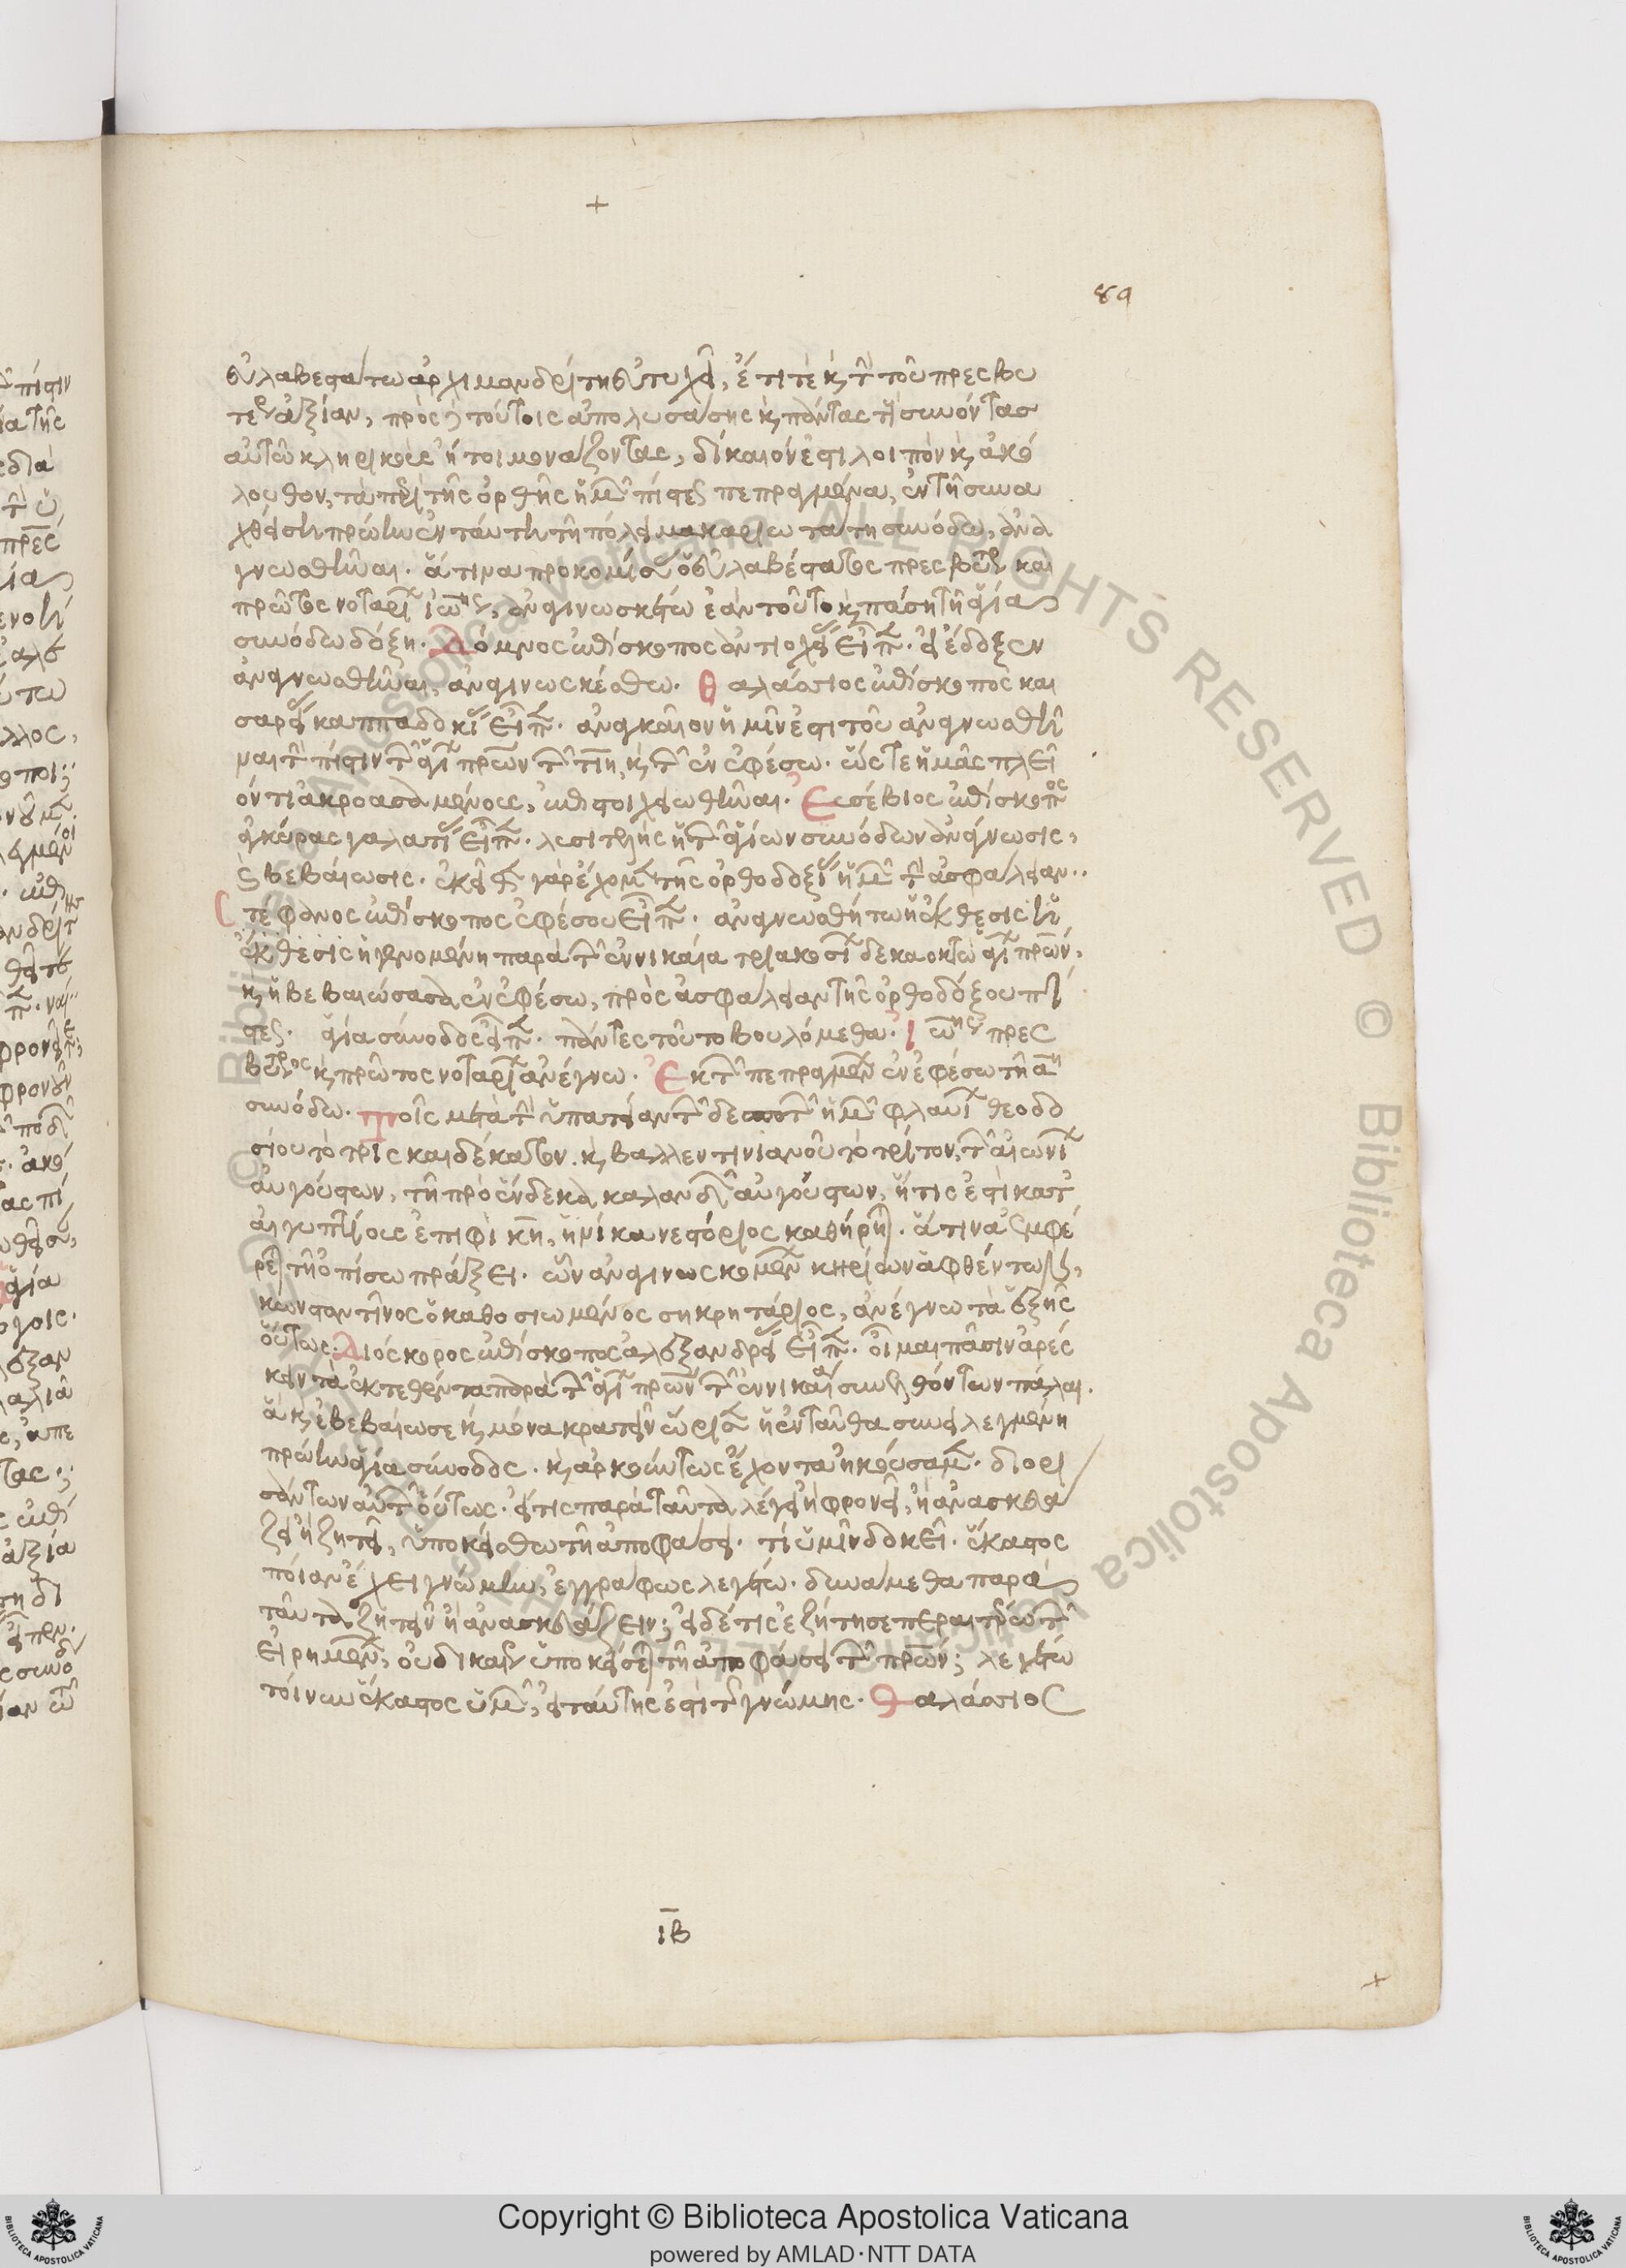 89
εὐλαβεστάτω ἀρχιμανδρίτη εὐτυχεῖ, ἔτι τὲ κ τὴν τοῦ πρεσβυ
τέρου ἀξίαν, πρὸς δὲ τούτοις ἀπολυσάσης κ πάντας τοὺς συνόντας
αὐτῶ κληρικοὺς ἤτοι μονάζοντας, δίκαιόν ἐστι λοιπὸν κ ἀκό
λουθον, τὰ περὶ τῆς ὀρθῆς ἡμῶν πίστεως πεπραγμένα, ἐν τῆ συνα
χθείση πρώην ἐν ταύτη τῆ πόλει μακαριωτάτη συνόδω, ἀνα
γνωσθῆναι. ἅτινα προκομίσας ὁ εὐλαβέστατος πρεσβύτερος καὶ
πρῶτος νοτάριος ἰωάννης, ἀναγινωσκέτω ἐὰν τοῦτο κ πάση τῆ ἁγία
συνόδω δόξη. Δόμνος ἐπίσκοπος ἀντιοχείας εἶπεν. εἰ ἔδοξεν
ἀναγνωσθῆναι, ἀναγινωσκέσθω. Θαλάσσιος ἐπίσκοπος και
σαρείας καππαδοκίας εἶπεν. ἀναγκαῖον ἡμῖν ἐστι τοῦ ἀναγνωσθῆ
ναι τὴν πίστιν τῶν ἁγίων πρων τῶν τιη, κ τῶν ἐν ἐφέσω. ὥστε ἡμᾶς πλεῖ
όν τι ἀκροασαμένους, ἐπιστοιχειωθῆναι. Εὐσέβιος ἐπίσκοπος
ἀγκύρας γαλατίας εἶπεν. λυσιτελὴς ἡ τῶν ἁγίων συνόδων ἀνάγνωσις,
κ βεβαίωσις. ἐκεῖθεν γὰρ ἔχομεν τῆς ὀρθοδοξίας ἡμῶν τὴν ἀσφάλειαν.
Στέφανος ἐπίσκοπος ἐφέσου εἶπεν. ἀναγνωσθήτω ἡ ἔκθεσις ἡ
ἔκθεσις ἡ γενομένη παρὰ τῶν ἐν νικαία τριακοσίων δεκαοκτὼ ἁγίων πρων,
κ ἡ βεβαιώσασα ἐν ἐφέσω, πρὸς ἀσφάλειαν τῆς ὀρθοδόξου πί
στεως. ἁγία σύνοδος εἶπεν. πάντες τοῦτο βουλόμεθα. Ἰωάννης πρεσ
βύτερος κ πρῶτος νοτάριος ἀνέγνω. Ἐκ τῶν πεπραγμένων ἐν ἐφέσω τῆ αη
συνόδω. Τοῖς μετὰ τὴν ὑπατείαν τῶν δεσποτῶν ἡμῶν φλαυίων θεοδο
σίου τὸ τρισκαιδέκατον. κ βαλλεντινιανοῦ τὸ τρίτον, τῶν αἰωνίων
αὐγούστων, τῆ πρὸ ἕνδεκα καλανδῶν αὐγούστων, ἥτις ἐστὶ κατ'
αἰγυπτίους ἐπιφὶ κη, ἡνίκα νεστόριος καθήρητο. ἅτινα ἐμφέ
ρεται τῆ ὀπίσω πράξει. ὧν ἀναγινωσκομένων κηρίων ἁφθέντων,
κωνσταντῖνος ὁ καθοσιωμένος σηκρητάριος, ἀνέγνω τὰ ἑξῆς
οὕτως. Διόσκορος ἐπίσκοπος ἀλεξανδρείας εἶπεν. οἶμαι πᾶσιν ἀρέσ
κειν τὰ ἐκτεθέντα παρὰ τῶν ἁγίων πρων τῶν ἐν νικαία συνελθόντων πάλαι.
ἃ κ ἐβεβαίωσε κ μόνα κρατεῖν ὥρισεν ἡ ἐνταῦθα συνειλεγμένη
πρώην ἁγία σύνοδος. κ ἀρκούντως ἔχοντα ἠκούσαμεν. διορι
σάντων αὐτῶν οὕτως. εἴ τις παρὰ ταῦτα λέγει ἢ φρονεῖ, ἢ ἀνασκευά
ζει ἢ ζητεῖ, ὑποκείσθω τῆ ἀποφάσει. τί ὑμῖν δοκεῖ. ἕκαστος
ποίαν ἔχει γνώμην, ἐγγράφως λεγέτω. δυνάμεθα παρὰ
ταῦτα ζητεῖν ἢ ἀνασκευάζειν; εἰ δέ τις ἐζήτησε περαιτέρω τῶν
εἰρημένων, οὐ δικαίως ὑποκείσεται τῆ ἀποφάσει τῶν πρων; λεγέτω
τοίνυν ἕκαστος ὑμῶν, εἰ ταύτης ἐστὶ τῆς γνώμης. Θαλάσσιος
ιβ
Copyright © Biblioteca Apostolica Vaticana
powered by AMLAD·NTT DATA